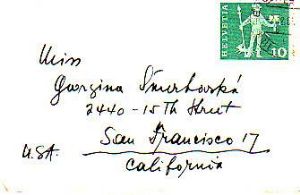 HELVETIA
10
Miss
Georgina Smerkovská
2440-15Th Street
San Francisco 17
U.S.A.
California